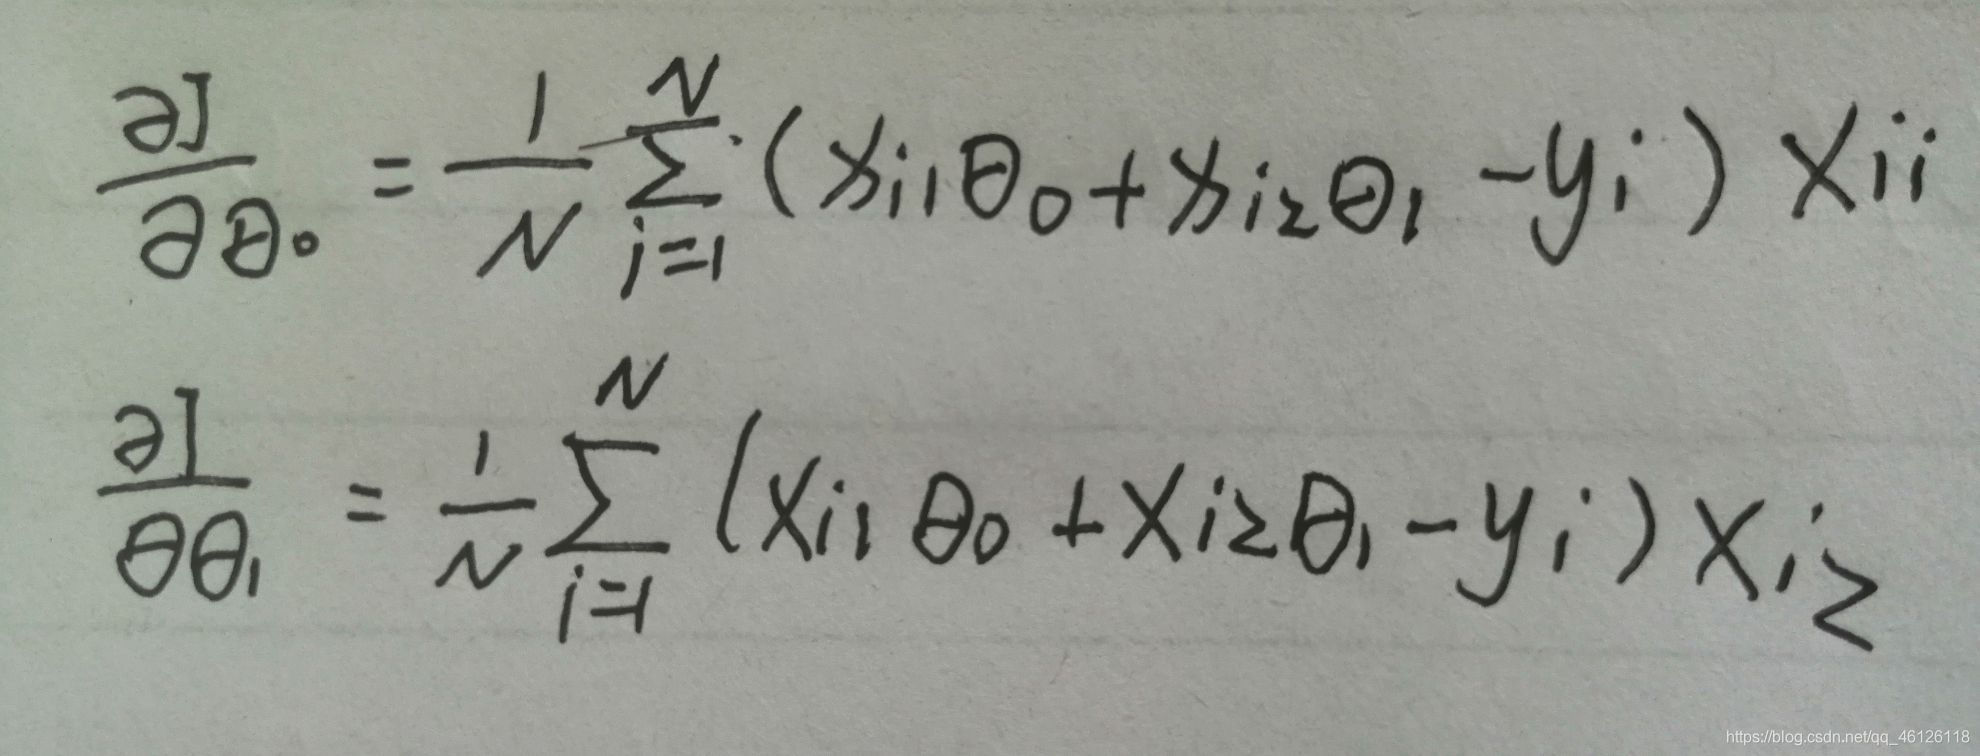 ∂J/∂θ₀ = 1/N ∑_{i=1}^{N} (x_{i1}θ₀ + x_{i2}θ₁ - y_i) x_{ii}
∂J/θθ₁ = 1/N ∑_{i=1}^{N} (x_{i1}θ₀ + x_{i2}θ₁ - y_i) x_{i2}
https://blog.csdn.net/qq_46126118